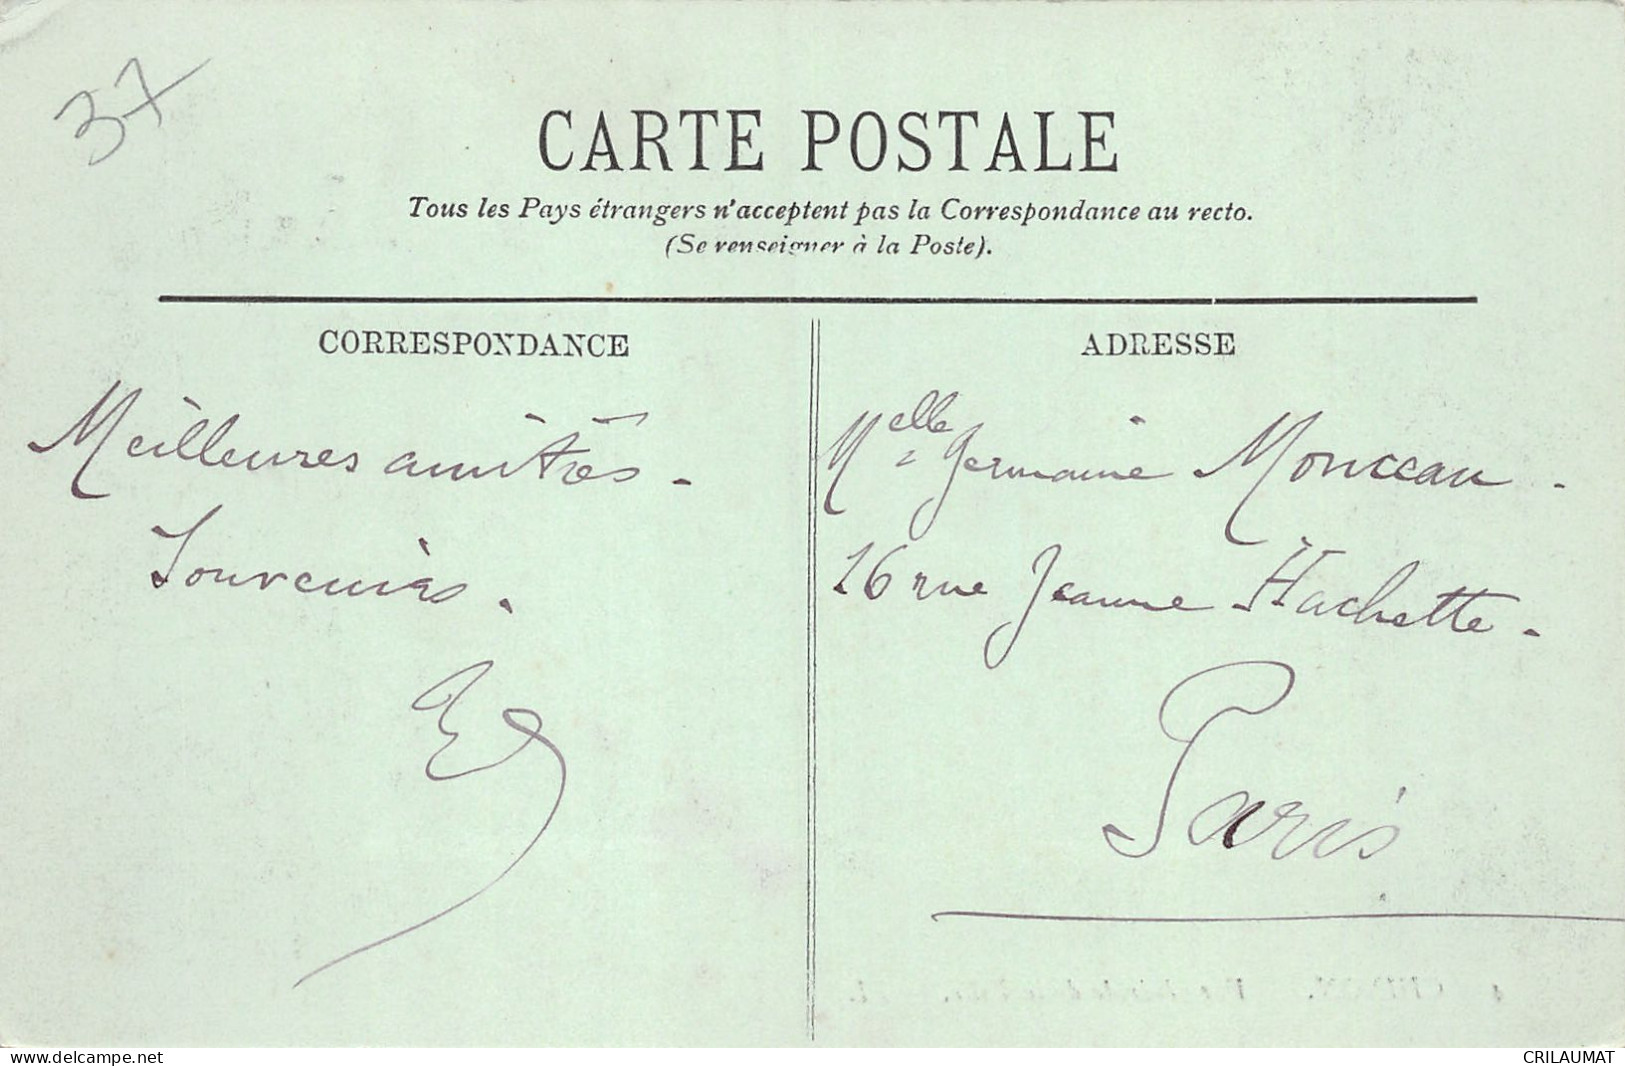 37
CARTE POSTALE
Tous les Pays étrangers n'acceptent pas la Correspondance au recto.
(Se renseigner à la Poste).
CORRESPONDANCE
Meilleures amitiés.
Souvenirs.
ADRESSE
Melle Germaine Monceau.
16 rue Jeanne Hachette.
Paris
www.delcampe.net
CRILAUMAT